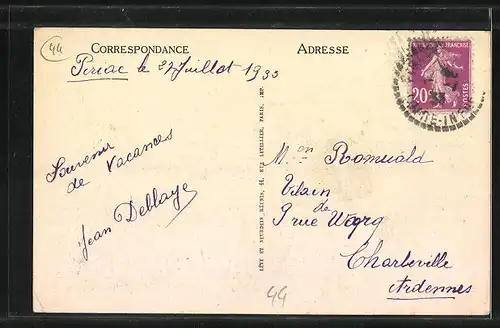 44
CORRESPONDANCE
ADRESSE
Piriac le Juillet 1933
RÉPUBLIQUE FRANÇAISE
20c
POSTES
Souvenir
de Vacances
Jean Deblaye
LÉVY ET NEURDEIN RÉUNIS, 44, RUE LETELLIER, PARIS, IMP.
Mr Romuald
Vilain
de
9 rue Warg
Charleville
Ardennes
44